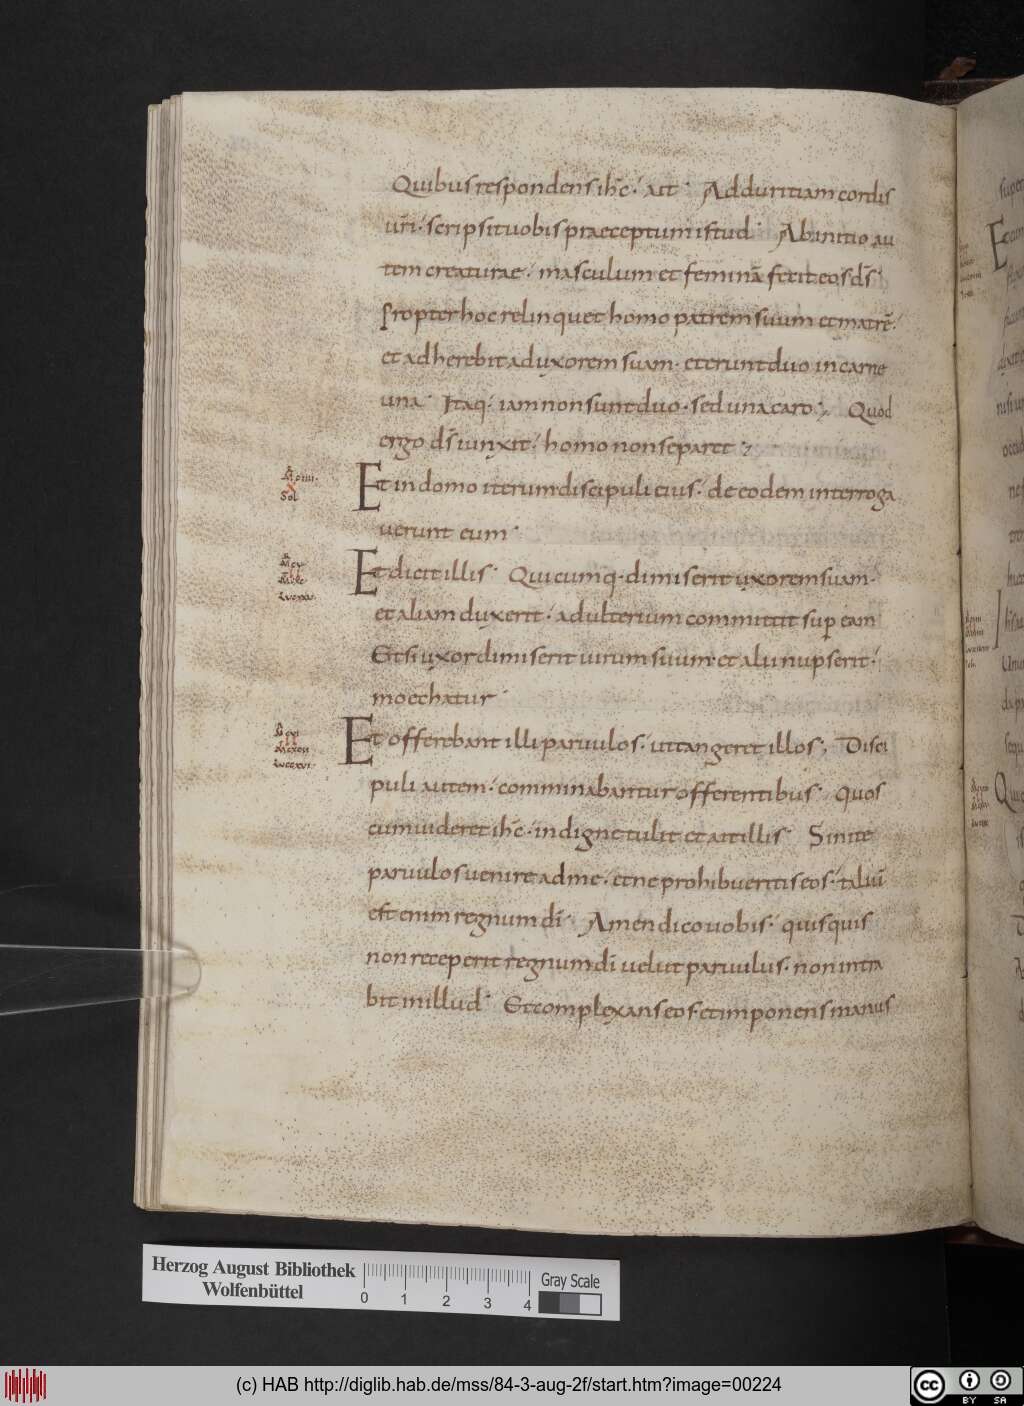 Quibus respondens ihc̄· ait· Ad duritiam cordis
uri̅· scripsit uobis praeceptum istud· Ab initio au
tem creaturae· masculum et feminā fecit eos ds̄·
Propter hoc relinquet homo patrem suum et matrē·
et adherebit ad uxorem suam· et erunt duo in carne
una· Itaq· iam non sunt duo· sed una caro; Quod
ergo ds̄ iunxit· homo non separet;
Et in domo iterum discipuli eius· de eodem interroga
uerunt eum·
Et dicit illis· Quicumq· dimiserit uxorem suam·
et aliam duxerit· adulterium committit sup̱ eam
Et si uxor dimiserit uirum suum· et alii nupserit·
moechatur·
Et offerebant illi paruulos· ut tangeret illos; Disci
puli autem· comminabantur offerentibus· Quos
cum uideret ihc̄· indigne tulit et ait illis· Sinite
paruulos uenire ad me· et ne prohibueritis eos· taliū
est enim regnum dī· Amen dico uobis· quisquis
non receperit regnum dī uelut paruulus· non intra
bit in illud· Et complexans eos· et imponens manus
sol
Herzog August Bibliothek
Wolfenbüttel
0 1 2 3 4
Gray Scale
(c) HAB http://diglib.hab.de/mss/84-3-aug-2f/start.htm?image=00224
cc BY SA